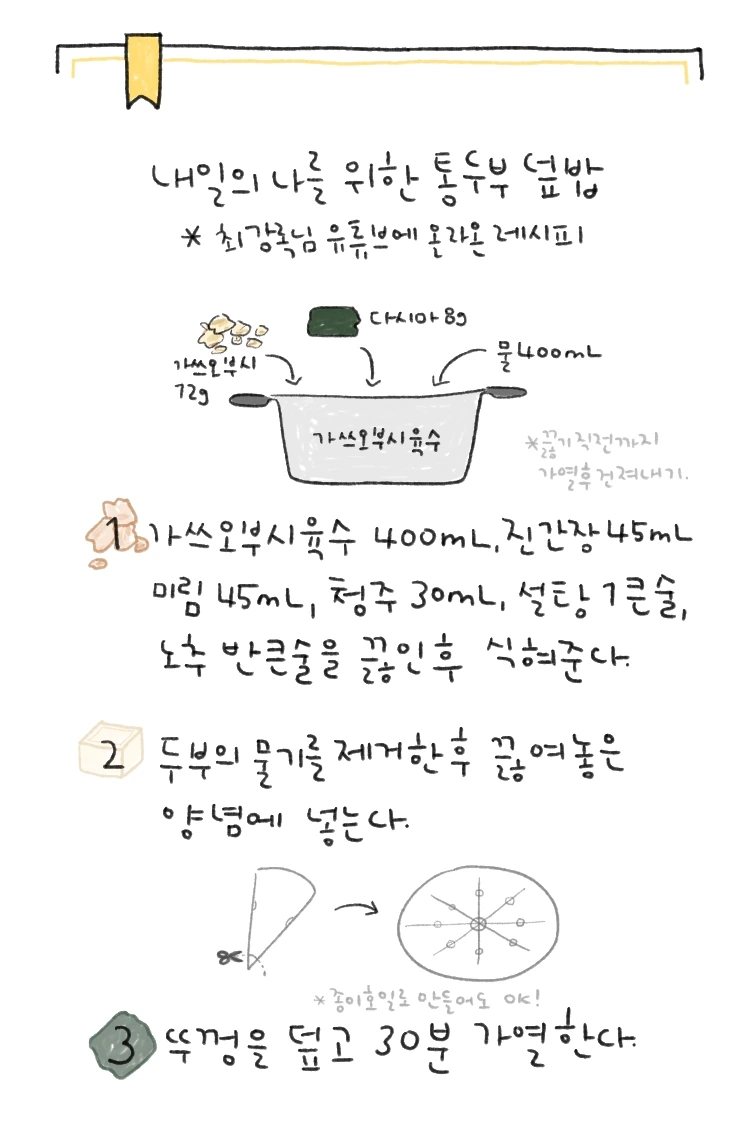 내일의 나를 위한 통두부 덮밥
* 최강록님 유튜브에 올라온 레시피
다시마 8g
가쓰오부시
12g
물 400mL
가쓰오부시육수
*끓기 직전까지
가열후 건져내기.
1 가쓰오부시육수 400mL, 진간장 45mL
미림 45mL, 청주 30mL, 설탕 1큰술,
노추 반큰술을 끓인후 식혀준다.
2 두부의 물기를 제거한후 끓여놓은
양념에 넣는다.
*종이호일로 만들어도 OK!
3 뚜껑을 덮고 30분 가열한다.